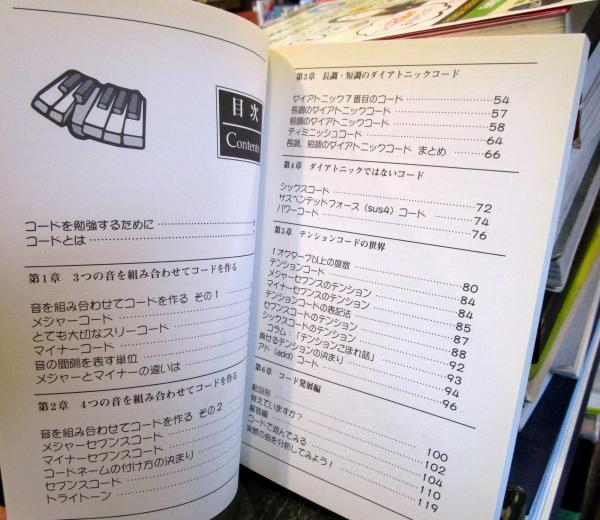 目次
Contents
コードを勉強するために
コードとは
第1章 3つの音を組み合わせてコードを作る
音を組み合わせてコードを作る その1
メジャーコード
とても大切なスリーコード
マイナーコード
音の間隔を表す単位
メジャーとマイナーの違いは
第2章 4つの音を組み合わせてコードを作る
音を組み合わせてコードを作る その2
メジャーセブンスコード
マイナーセブンスコード
コードネームの付け方の決まり
セブンスコード
トライトーン
第3章 長調・短調のダイアトニックコード
ダイアトニック7番目のコード 54
長調のダイアトニックコード 57
短調のダイアトニックコード 58
ディミニッシュコード 64
長調、短調のダイアトニックコード まとめ 66
第4章 ダイアトニックではないコード
シックスコード 72
サスペンデットフォース (sus4) コード 74
パワーコード 76
第5章 テンションコードの世界
1オクターブ以上の度数 80
テンションコード 84
メジャーセブンスのテンション 84
マイナーセブンスのテンション 85
テンションコードの表記法 87
セブンスコードのテンション 88
シックスコードのテンション 92
コラム:「テンションこぼれ話」 93
乗せるテンションの決まり 94
アド (add) コード 96
第6章 コード発展編
転回形 100
覚えていますか? 102
解答編 104
コードで遊んでみる 110
実際の曲を分析してみよう! 119